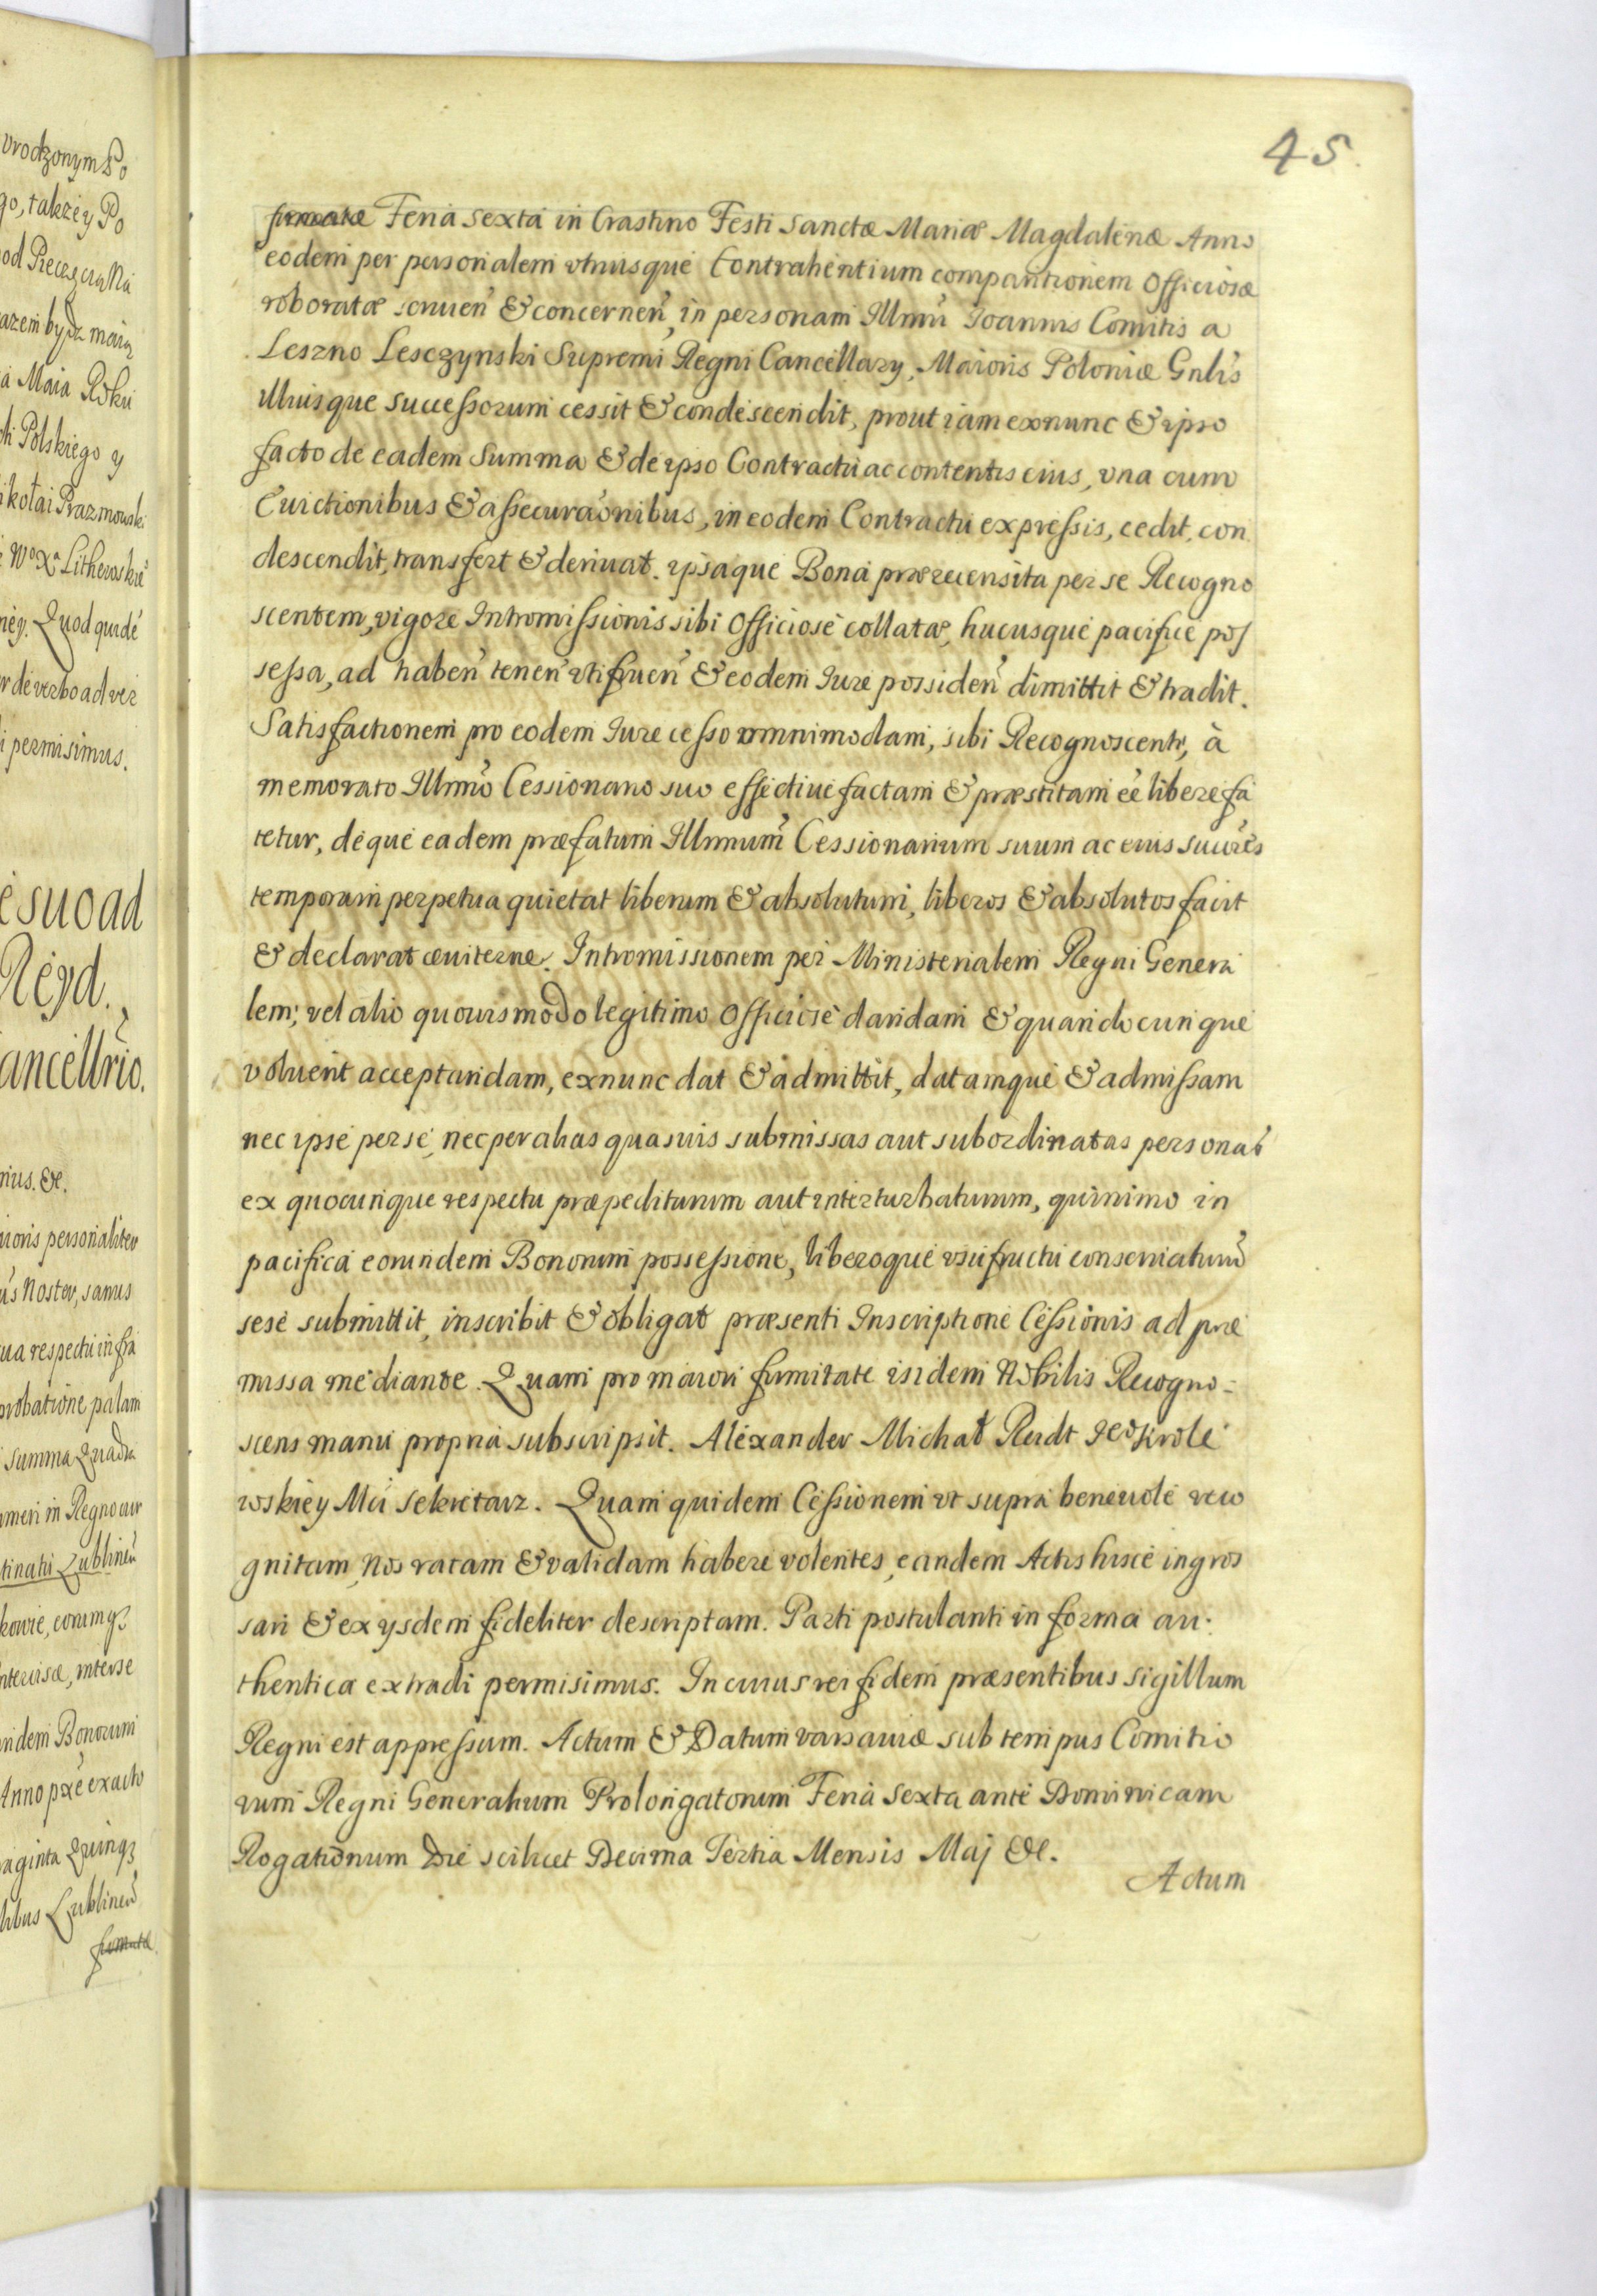 45.
firmatæ Feria sexta in Crastino Festi Sanctæ Mariæ Magdalenæ Anno
eodem per personalem utriusque Contrahentium comparitionem Officiosæ
roboratæ servień & concerneń, in personam Illmū Joannis Comitis a
Leszno Lesczynski Supremi Regni Cancellary, Maioris Poloniæ Gnlis
illiusque Successorum cessit & condescendit, prout iam exnunc & ipso
facto de eadem Summa & de ipso Contractu ac contentis eius, vna cum
Euictionibus & assecuraōnibus, in eodem Contractu expressis, cedit, con
descendit, transfert & deriuat. ipsaque Bona prærecensita per se Recogno
scentem, vigore Intromissionis sibi Officiose collatæ, hucusque pacifice pos
sessa, ad habeń teneń vtifrueń & eodem Iure possideń dimittit & tradit.
Satisfactionem pro eodem Iure cesso omnimodam, sibi Recognoscenti, à
memorato Illmo Cessionario suo effectiue factam & præstitam eē libere fa
tetur, deque eadem præfatum Illmum Cessionarium suum ac eius suures
temporum perpetua quietat liberum & absolutum, liberos & absolutos facit
& declarat æuiterne. Intromissionem per Ministerialem Regni Genera
lem; vel alio quouis modo legitimo Officiose dandam & quandocunque
voluerit acceptandam, exnunc dat & admittit, datamque & admissam
nec ipse per se, nec per alias quasuis submissas aut subordinatas personas
ex quocunque respectu præpediturum aut interturbaturum, quinimo in
pacifica eorundem Bonorum possessione, liberoque vsufructu conseruaturū
sese submittit, inscribit & obligat præsenti Inscriptione Cessionis ad præ
missa mediante. Quam pro maiori firmitate isidem Nobilis Recogno-
scens manu propria subscripsit. Alexander Michał Reidt Ieo Krole
wskiey Mci Sekretarz. Quam quidem Cessionem vt supra beneuole reco
gnitam, Nos ratam & validam habere volentes, eandem Actis hisce ingros
sari & ex ysdem fideliter descriptam. Parti postulanti in forma au:
thentica extradi permisimus. In cuius rei fidem præsentibus sigillum
Regni est appressum. Actum & Datum varsauiæ sub tempus Comitio
rum Regni Generalium Prolongatorum Feria Sexta ante Dominicam
Rogationum Die scilicet Decima Tertia Mensis Maj &c.
Actum